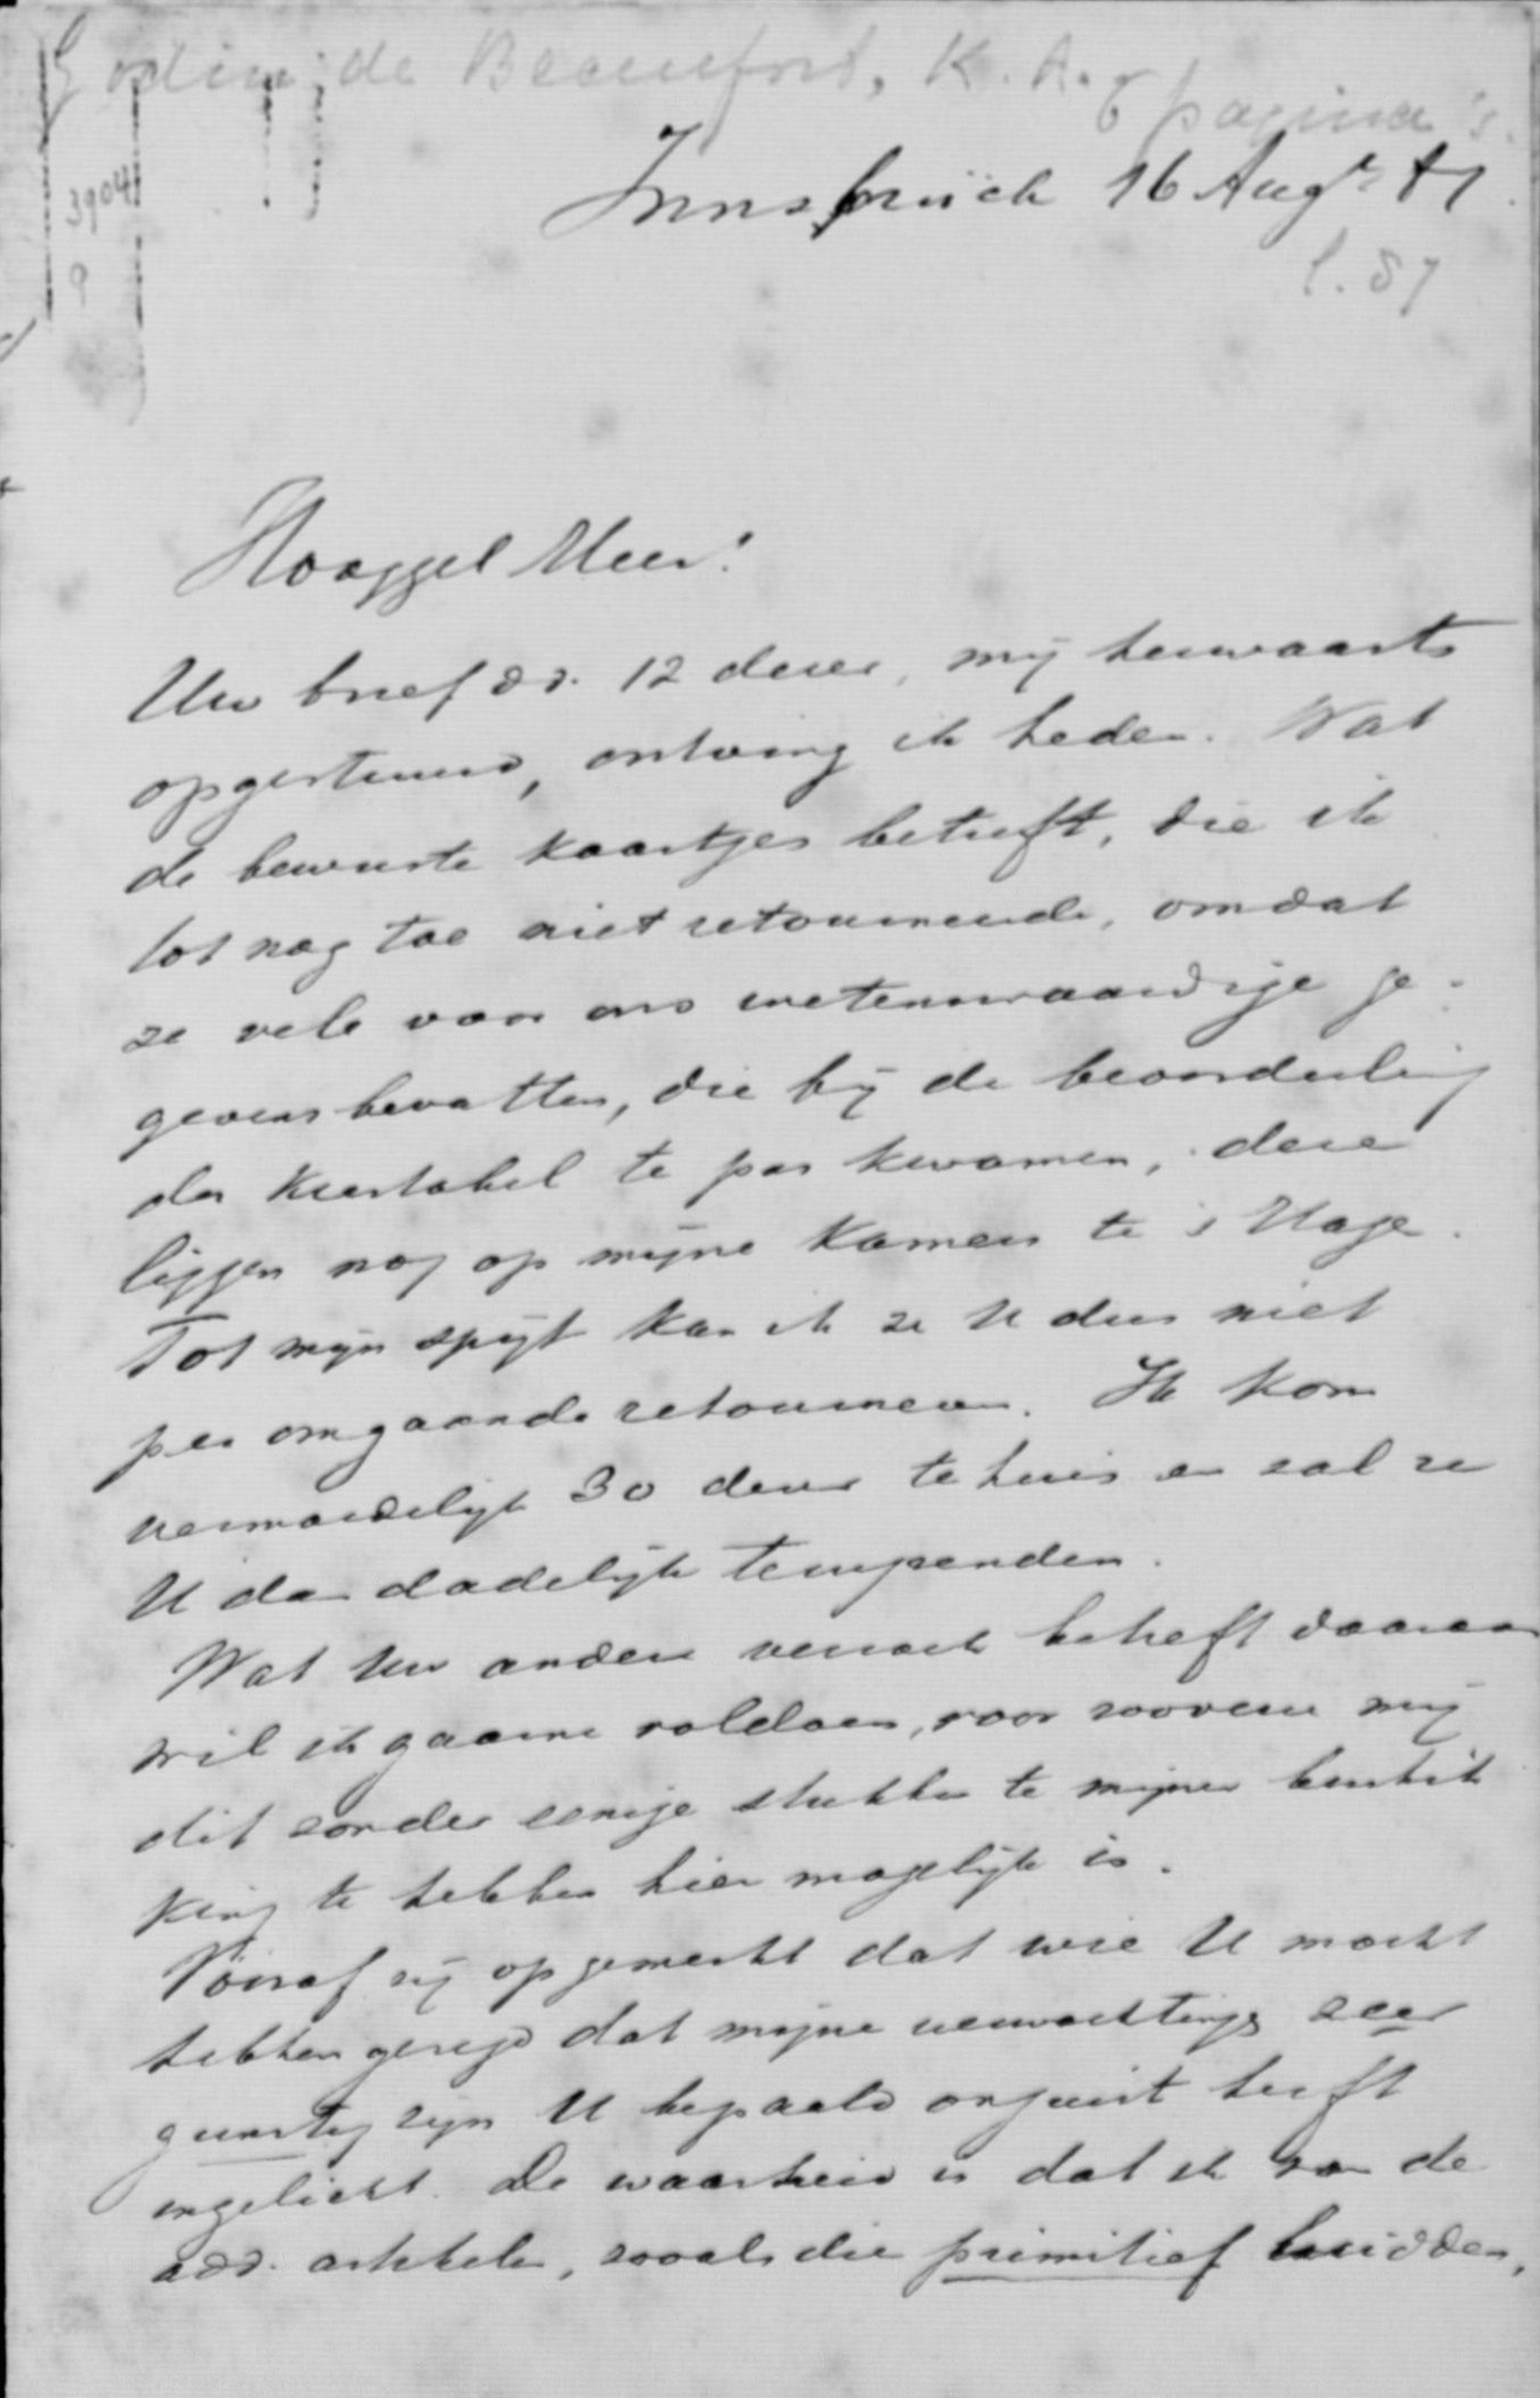 Godin de Beaufort, K. A. 6 pagina's.
3904
9
Innsbrück 16 Aug^t 87
l. 87
Hooggel Heer!
Uw brief dd. 12 dezer, mij herwaarts
opgestuurd, ontving ik heden. Wat
de bewuste kaartjes betreft, die ik
tot nog toe niet retourneerde, omdat
ze vele voor ons wetenswaardige ge-
gevens bevatten, die bij de beoordeeling
der kiestabel te pas kwamen, deze
liggen nog op mijne kamers te 's Hage.
Tot mijn spijt kan ik ze U dus niet
per omgaande retourneeren. Ik kom
vermoedelijk 30 dezer te huis en zal ze
U dan dadelijk terugzenden.
Wat Uw andere verzoek betreft daaraan
wil ik gaarne voldoen, voor zooverre mij
dit zonder eenige stukken te mijner beschik
king te hebben hier mogelijk is.
Vooraf zij opgemerkt dat wie U mocht
hebben gezegd dat mijne verwachtings zeer
gunstig zijn U bepaald onjuist heeft
ingelicht. De waarheid is dat ik van de
add. artikelen, zooals die primitief luidden,